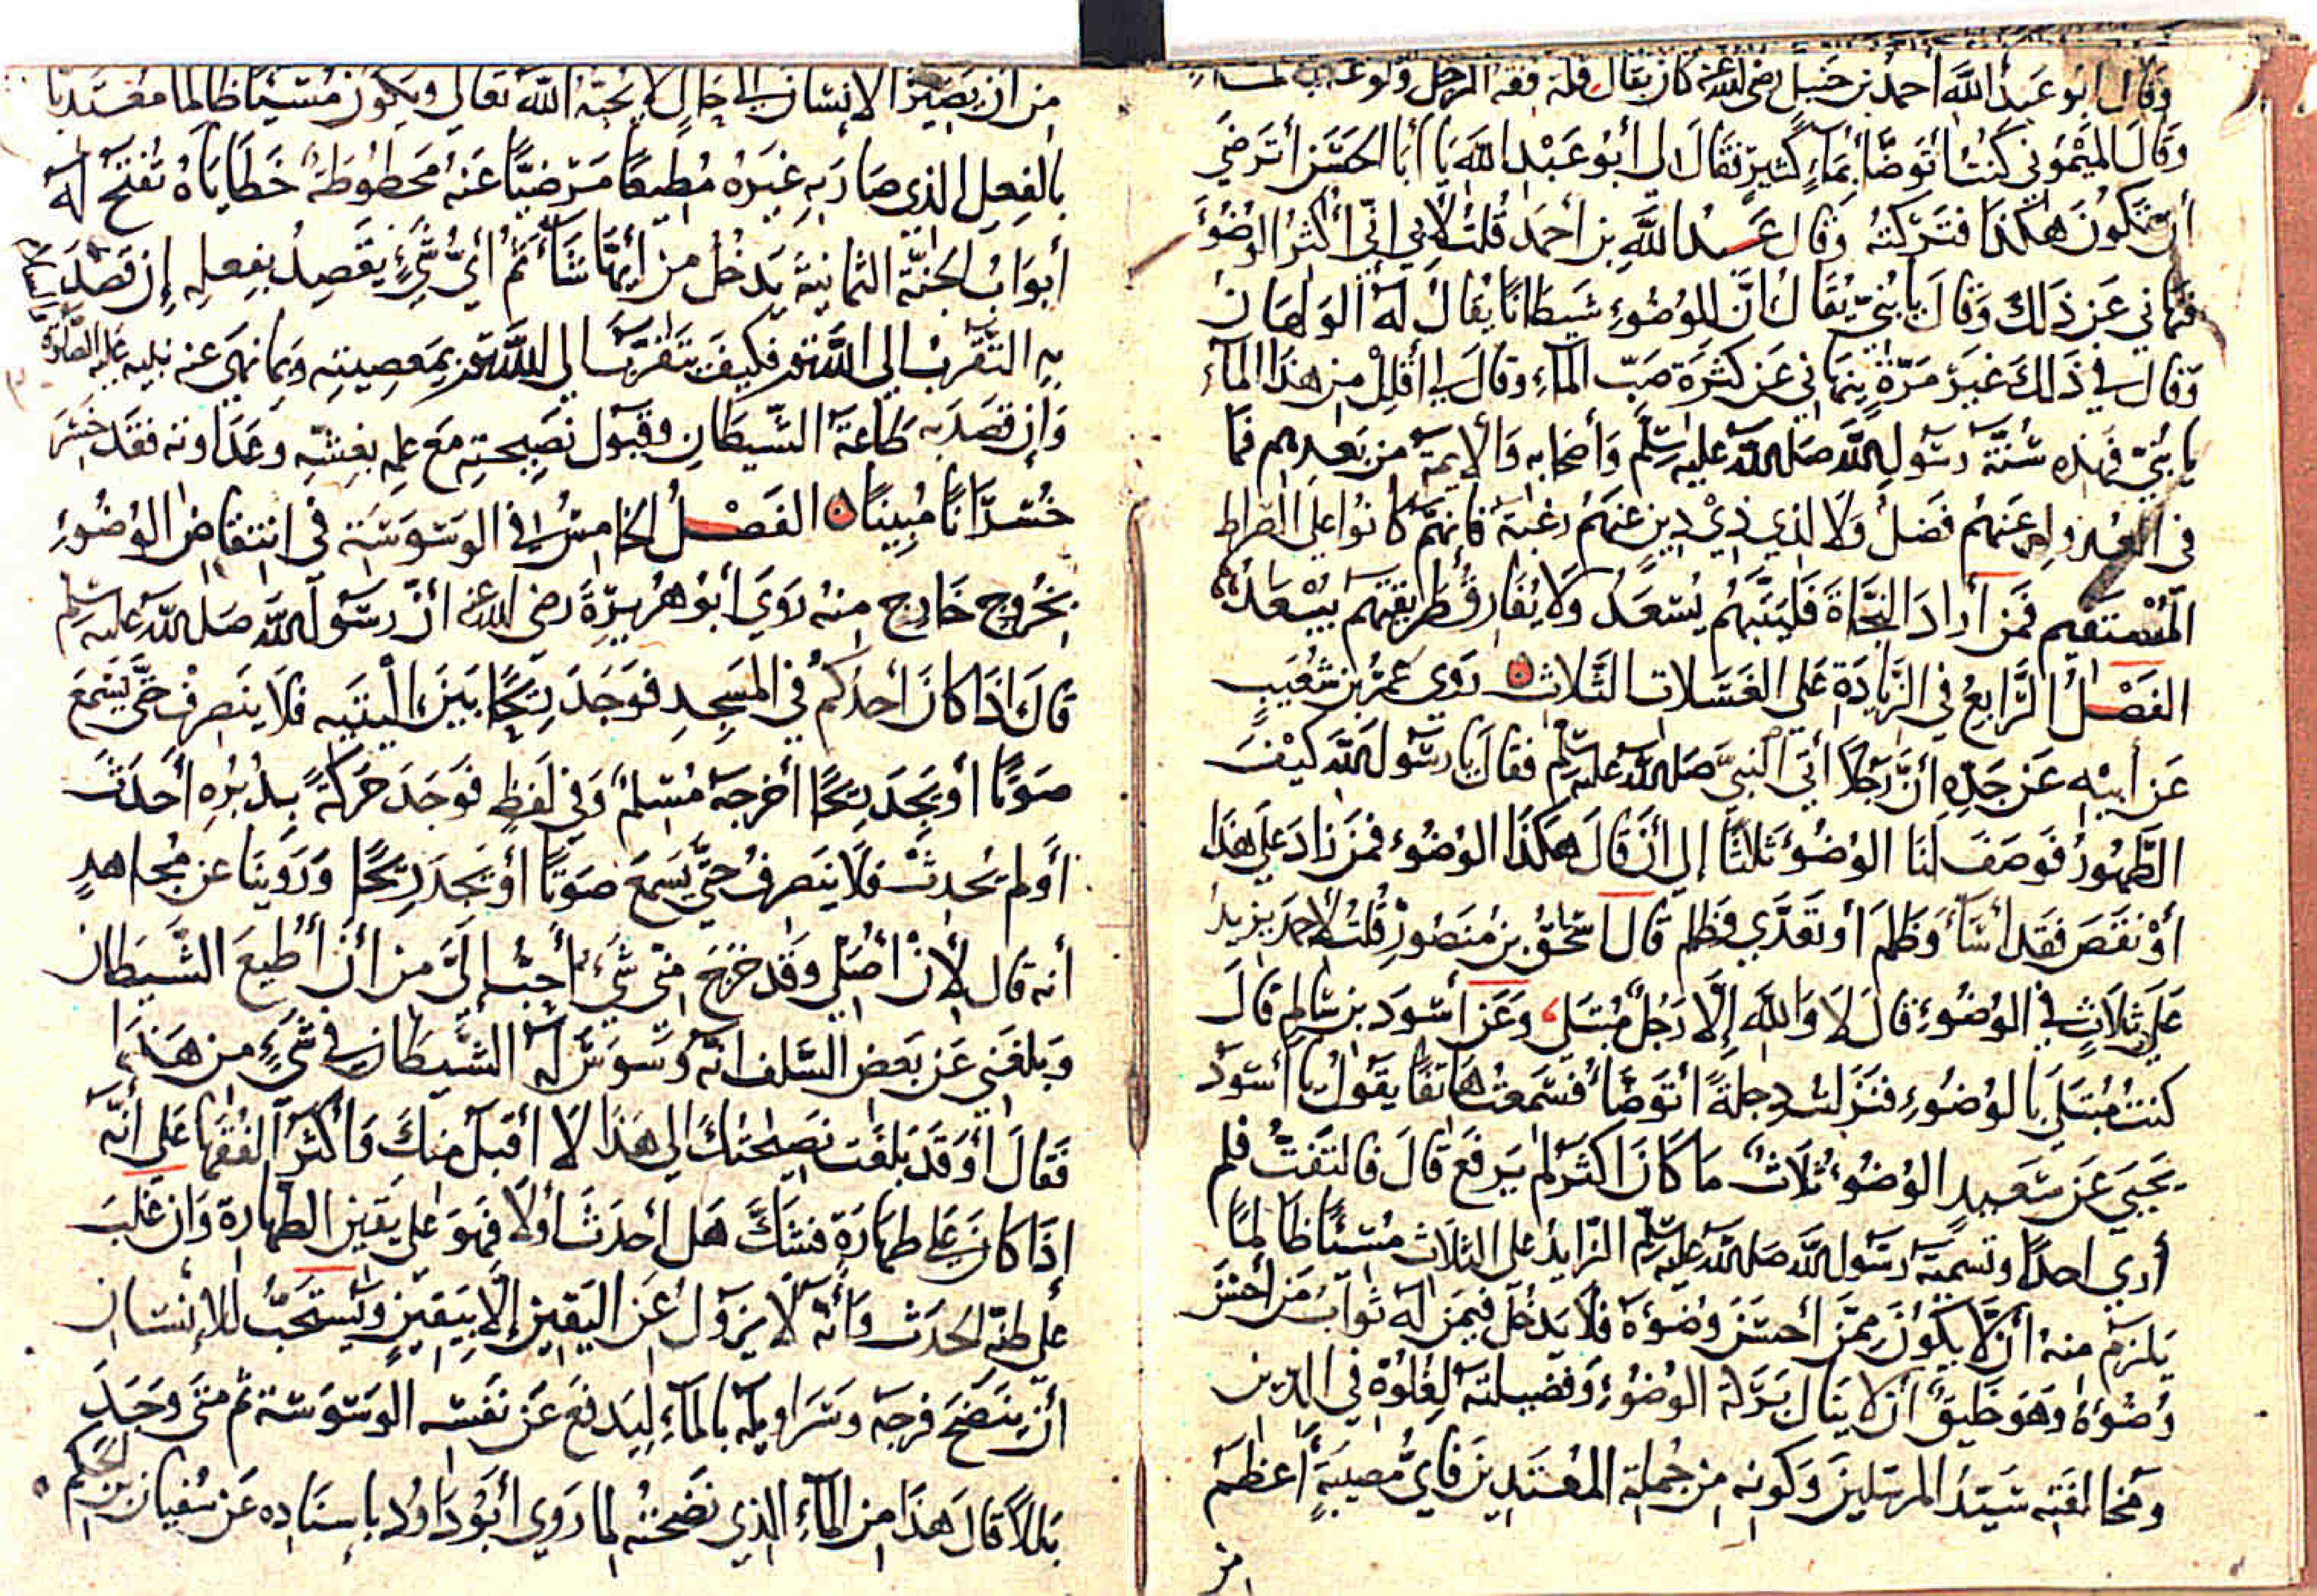 وقال ابو عبد الله أحمد بن حنبل رضي الله عنه كان يقال قلة فقه الرجل ولوعه
وقال الميموني كنت أتوضأ بماء كثير فقال لي أبو عبد الله يا أبا الحسن أترضي
أن تكون هكذا فتركته وقال عبد الله بن احمد قلت لأبي اني أكثر الوضوء
فنهاني عن ذلك وقال يا بني يقال ان للوضوء شيطانا يقال له الولهان
وقال لي في ذلك غير مرة ينهاني عن كثرة صب الماء وقال لي أقلل من هذا الماء
يا بني فهذه سنة رسول الله صلى الله عليه وسلم وأصحابه والأيمة من بعدهم فما
في عنهم فضل ولا لذي دين عنهم رغبة فانهم كانوا على الصراط
المستقيم فمن أراد النجاة فليتبعهم يسعد ولا يفارق طريقتهم يبعد
الفصل الرابع في الزيادة علي الغسلات الثلاث روى عمر بن شعيب
عن أبيه عن جده أن رجلا أتي النبي صلى الله عليه وسلم فقال يا رسول الله كيف
الطهور فوصف لنا الوضوء ثلاثا إلى أن قال هكذا الوضوء فمن زاد على هذا
أو نقص فقد أساء وظلم أو تعدي وظلم قال اسحق بن منصور قلت لأحمد يزيد
علي ثلاث في الوضوء قال لا والله إلا رجل مبتلي وعن أسود بن سالم قال
كنت مبتلي بالوضوء فنزلت دجلة أتوضأ فسمعت هاتفا يقول يا أسود
يحيي عن سعيد الوضوء ثلاث ما كان اكثر لم يرفع قال فالتفت فلم
أري احدا وتسمية رسول الله صلى الله عليه وسلم الزايد على الثلاث مسيئا ظالما
يلزم منه أن لا يكون ممن أحسن وضوءه فلا يدخل فيمن له ثواب من أحسن
وضوءه وهو خليق أن لا ينال بركة الوضوء وفضيلته لغلوه في الدين
ومخالفته سيد المرسلين وكونه من جملة المعتدين فاي مصيبة أعظم
من
من ان يصير الإنسان الى حال لا يحبه الله تعالى ويكون مسيئا ظالما معتديا
بالفعل الذي صار به غيره مطيعا مرضيا عنه محطوطة خطاياه تفتح له
أبواب الجنة الثمانية يدخل من أيها شاء ثم أي شيء يقصد بفعله إن قصد
به التقرب الى الله فكيف يتقرب الى الله بمعصيته وبما نهى عنه نبيه عليه الصلوة
وإن قصد به طاعة الشيطان وقبول نصيحته مع علمه بغشه وعداوته فقد خسر
خسرانا مبينا الفصل الخامس في الوسوسة في انتقاض الوضوء
بخروج خارج منه روي أبو هريرة رضي الله عنه أن رسول الله صلى الله عليه وسلم
قال اذا كان أحدكم في المسجد فوجد ريحا بين اليتيه فلا ينصرف حتى يسمع
صوتا أو يجد ريحا أخرجه مسلم وفي لفظ فوجد حركة بدبره أحدث
أو لم يحدث فلا ينصرف حتى يسمع صوتا أو يجد ريحا وروينا عن مجاهد
أنه قال لأن أصلي وقد خرج مني شيء أحب إلي من أن أطيع الشيطان
وبلغني عن بعض السلف انه وسوس له الشيطان في شيء من هذا
فقال أوقد بلغت نصيحتك لي هذا لا أقبل منك وأكثر الفقها على أنه
اذا كان على طهارة فشك هل أحدث أولا فهو على يقين الطهارة وان غلب
على ظنه الحدث وأنه لا يزول عن اليقين إلا بيقين ويستحب للإنسان
أن ينضح فرجه وسراويله بالماء ليدفع عن نفسه الوسوسة ثم متى وجد
بللا قال هذا من الماء الذي نضحته لما روي أبو داود باسناده عن سفيان بن الحكم